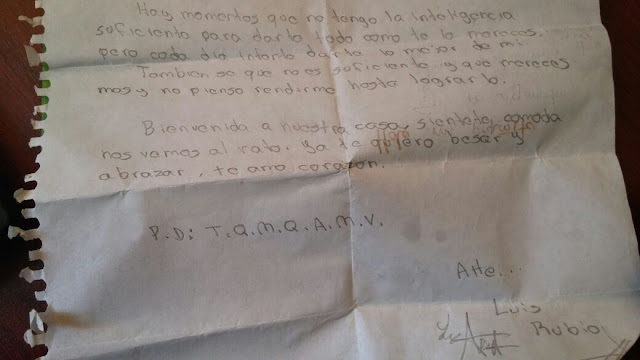 Hay momentos que no tengo la inteligencia
suficiente para darte todo como te lo mereces,
pero cada día intento darte lo mejor de mi.
Tambien se que no es suficiente y que mereces
mas y no pienso rendirme hasta lograrlo.
Bienvenida a nuestra casa, sientete comoda
nos vemos al rato, ya te quiero besar y
abrazar, te amo corazon.
P.D: T.Q.M.Q.A.M.V.
Atte...
Luis
Rubio